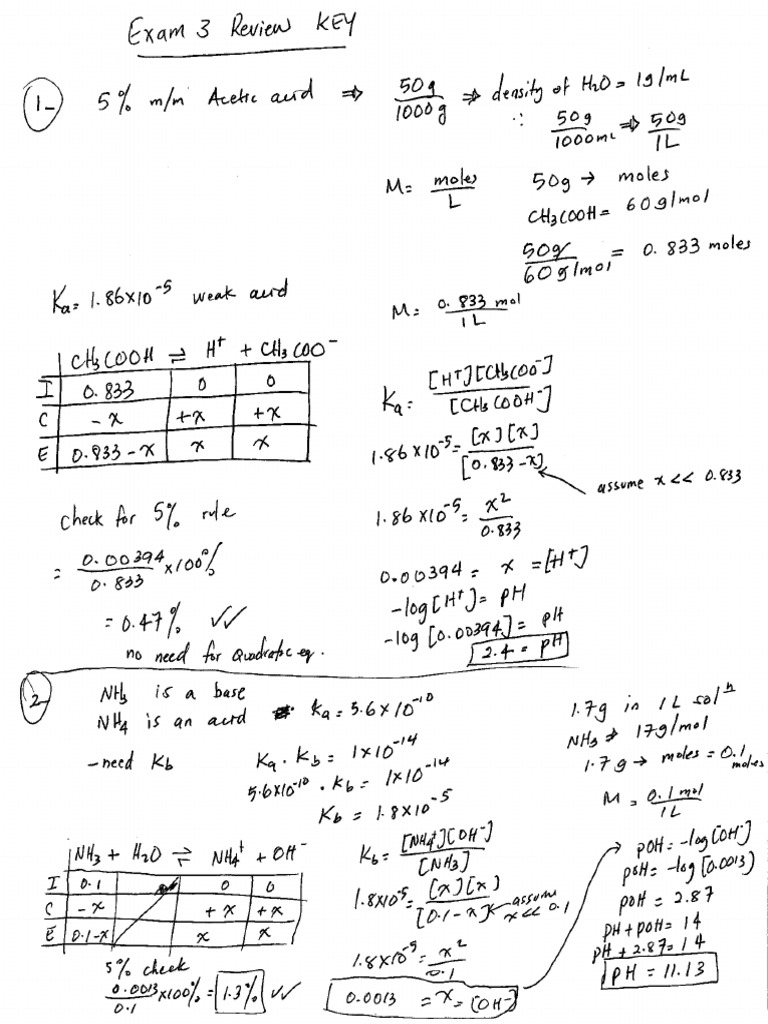 Exam 3 Review KEY
1- 5% m/m Acetic acid ⇒ 50g/1000g ⇒ density of H2O = 1g/mL
∴ 50g/1000mL ⇒ 50g/1L
M= moles/L 50g → moles
CH3COOH = 60g/mol
50g/60g/mol = 0.833 moles
Ka = 1.86x10^-5 weak acid
M = 0.833 mol/1L
CH3COOH ⇌ H+ + CH3COO-
I 0.833 0 0
C -x +x +x
E 0.833-x x x
Ka = [H+][CH3COO-]/[CH3COOH-]
1.86x10^-5 = [x][x]/[0.833-x]
assume x << 0.833
1.86x10^-5 = x^2/0.833
0.00394 = x = [H+]
-log[H+] = pH
-log[0.00394] = pH
2.4 = pH
check for 5% rule
= 0.00394/0.833 x100%
= 0.47% ✓✓
no need for Quadratic eq.
2- NH3 is a base
NH4 is an acid Ka = 5.6x10^-10
-need Kb
Ka · Kb = 1x10^-14
5.6x10^-10 · Kb = 1x10^-14
Kb = 1.8x10^-5
1.7g in 1L sol^n
NH3 ⇒ 17g/mol
1.7g → moles = 0.1 moles
M = 0.1 mol/1L
NH3 + H2O ⇌ NH4+ + OH-
I 0.1 0 0
C -x +x +x
E 0.1-x x x
5% check
0.0013/0.1 x100% = 1.3% ✓✓
Kb = [NH4+][OH-]/[NH3]
1.8x10^-5 = [x][x]/[0.1-x] assume x << 0.1
1.8x10^-5 = x^2/0.1
0.0013 = x = [OH-]
pOH = -log[OH-]
pOH = -log[0.0013]
pOH = 2.87
pH + pOH = 14
pH + 2.87 = 14
pH = 11.13